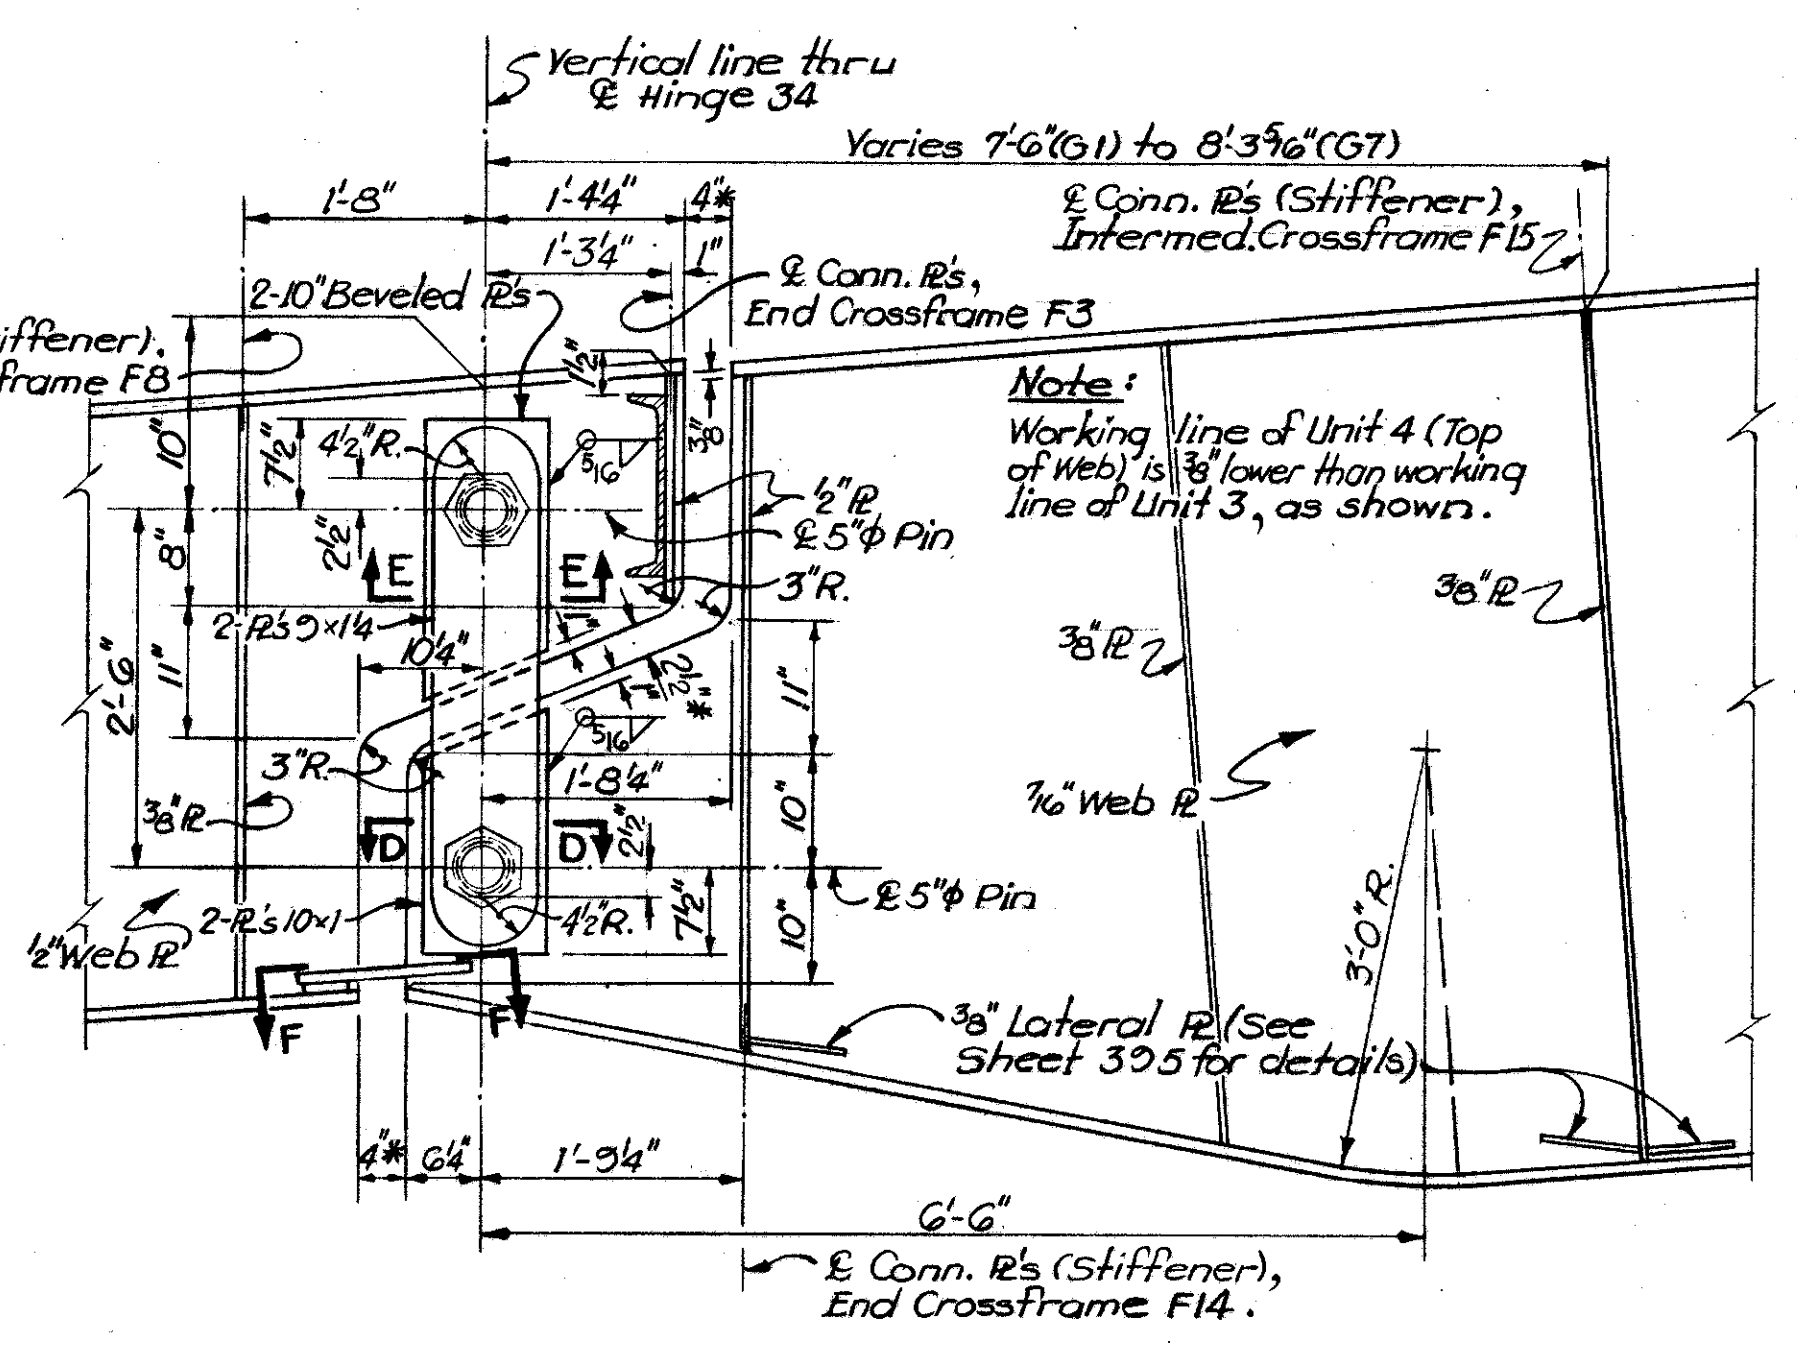 Vertical line thru
℄ Hinge 34
Varies 7'-6"(G1) to 8'-3 5/16"(G7)
1'-8"
1'-4 1/4"
4"*
℄ Conn. ℙL's (Stiffener),
Intermed. Crossframe F15
1'-3 1/4"
1"
℄ Conn. ℙL's,
End Crossframe F3
2-10" Beveled ℙL's
iffener),
frame F8
1 1/2"
3/8"
Note:
Working line of Unit 4 (Top
of Web) is 3/8" lower than working
line of Unit 3, as shown.
10"
7 1/2"
4 1/2" R.
5/16
1/2" ℙL
℄ 5"ϕ Pin
2 1/2"
8"
E
E
3" R.
3/8" ℙL
2-ℙL's 9×1 1/4
1"
3/8" ℙL
10 1/4"
2'-6"
11"
1"
2 1/2"*
11"
5/16
3" R.
1'-8 1/4"
3/8" ℙL
7/16" Web ℙL
10"
D
D
2 1/2"
℄ 5"ϕ Pin
2-ℙL's 10×1
4 1/2" R.
7 1/2"
10"
3'-0" R.
1/2" Web ℙL
F
F
3/8" Lateral ℙL (See
Sheet 395 for details)
4"*
6 1/4"
1'-9 1/4"
6'-6"
℄ Conn. ℙL's (Stiffener),
End Crossframe F14.